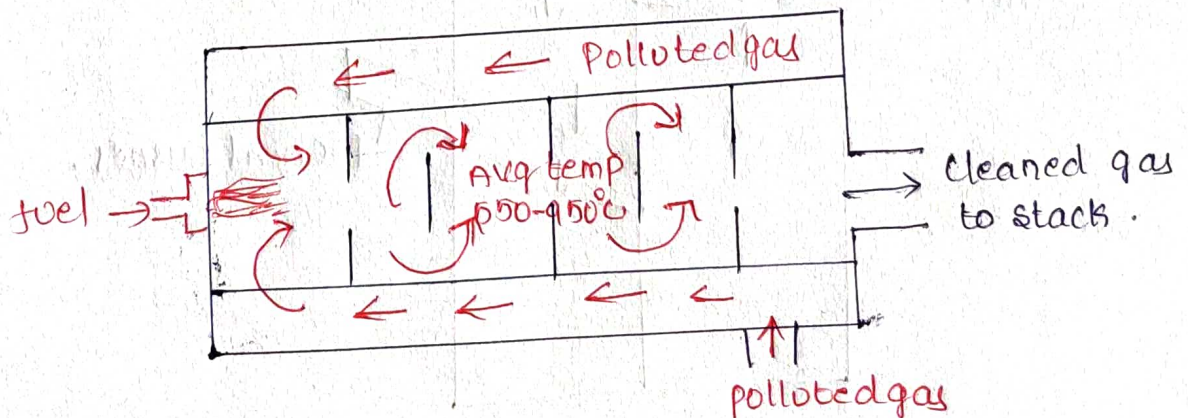 Polluted gas
fuel
Avg temp
550-950°C
Cleaned gas
to stack.
polluted gas